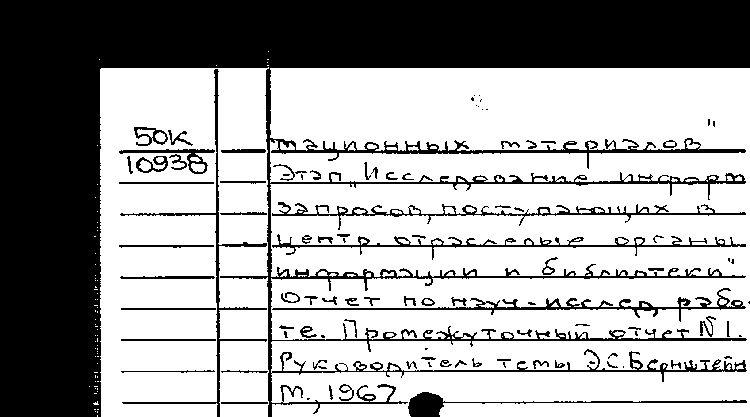 50К
10938
тационных материалов"
Этап „Исследование информ
запросов, поступающих в
центр. отраслевые органы
информации и библиотеки".
Отчет по науч-исслед. рабо-
те. Промежуточный отчет №1.
Руководитель темы Э.С.Бернштейн
М., 1967